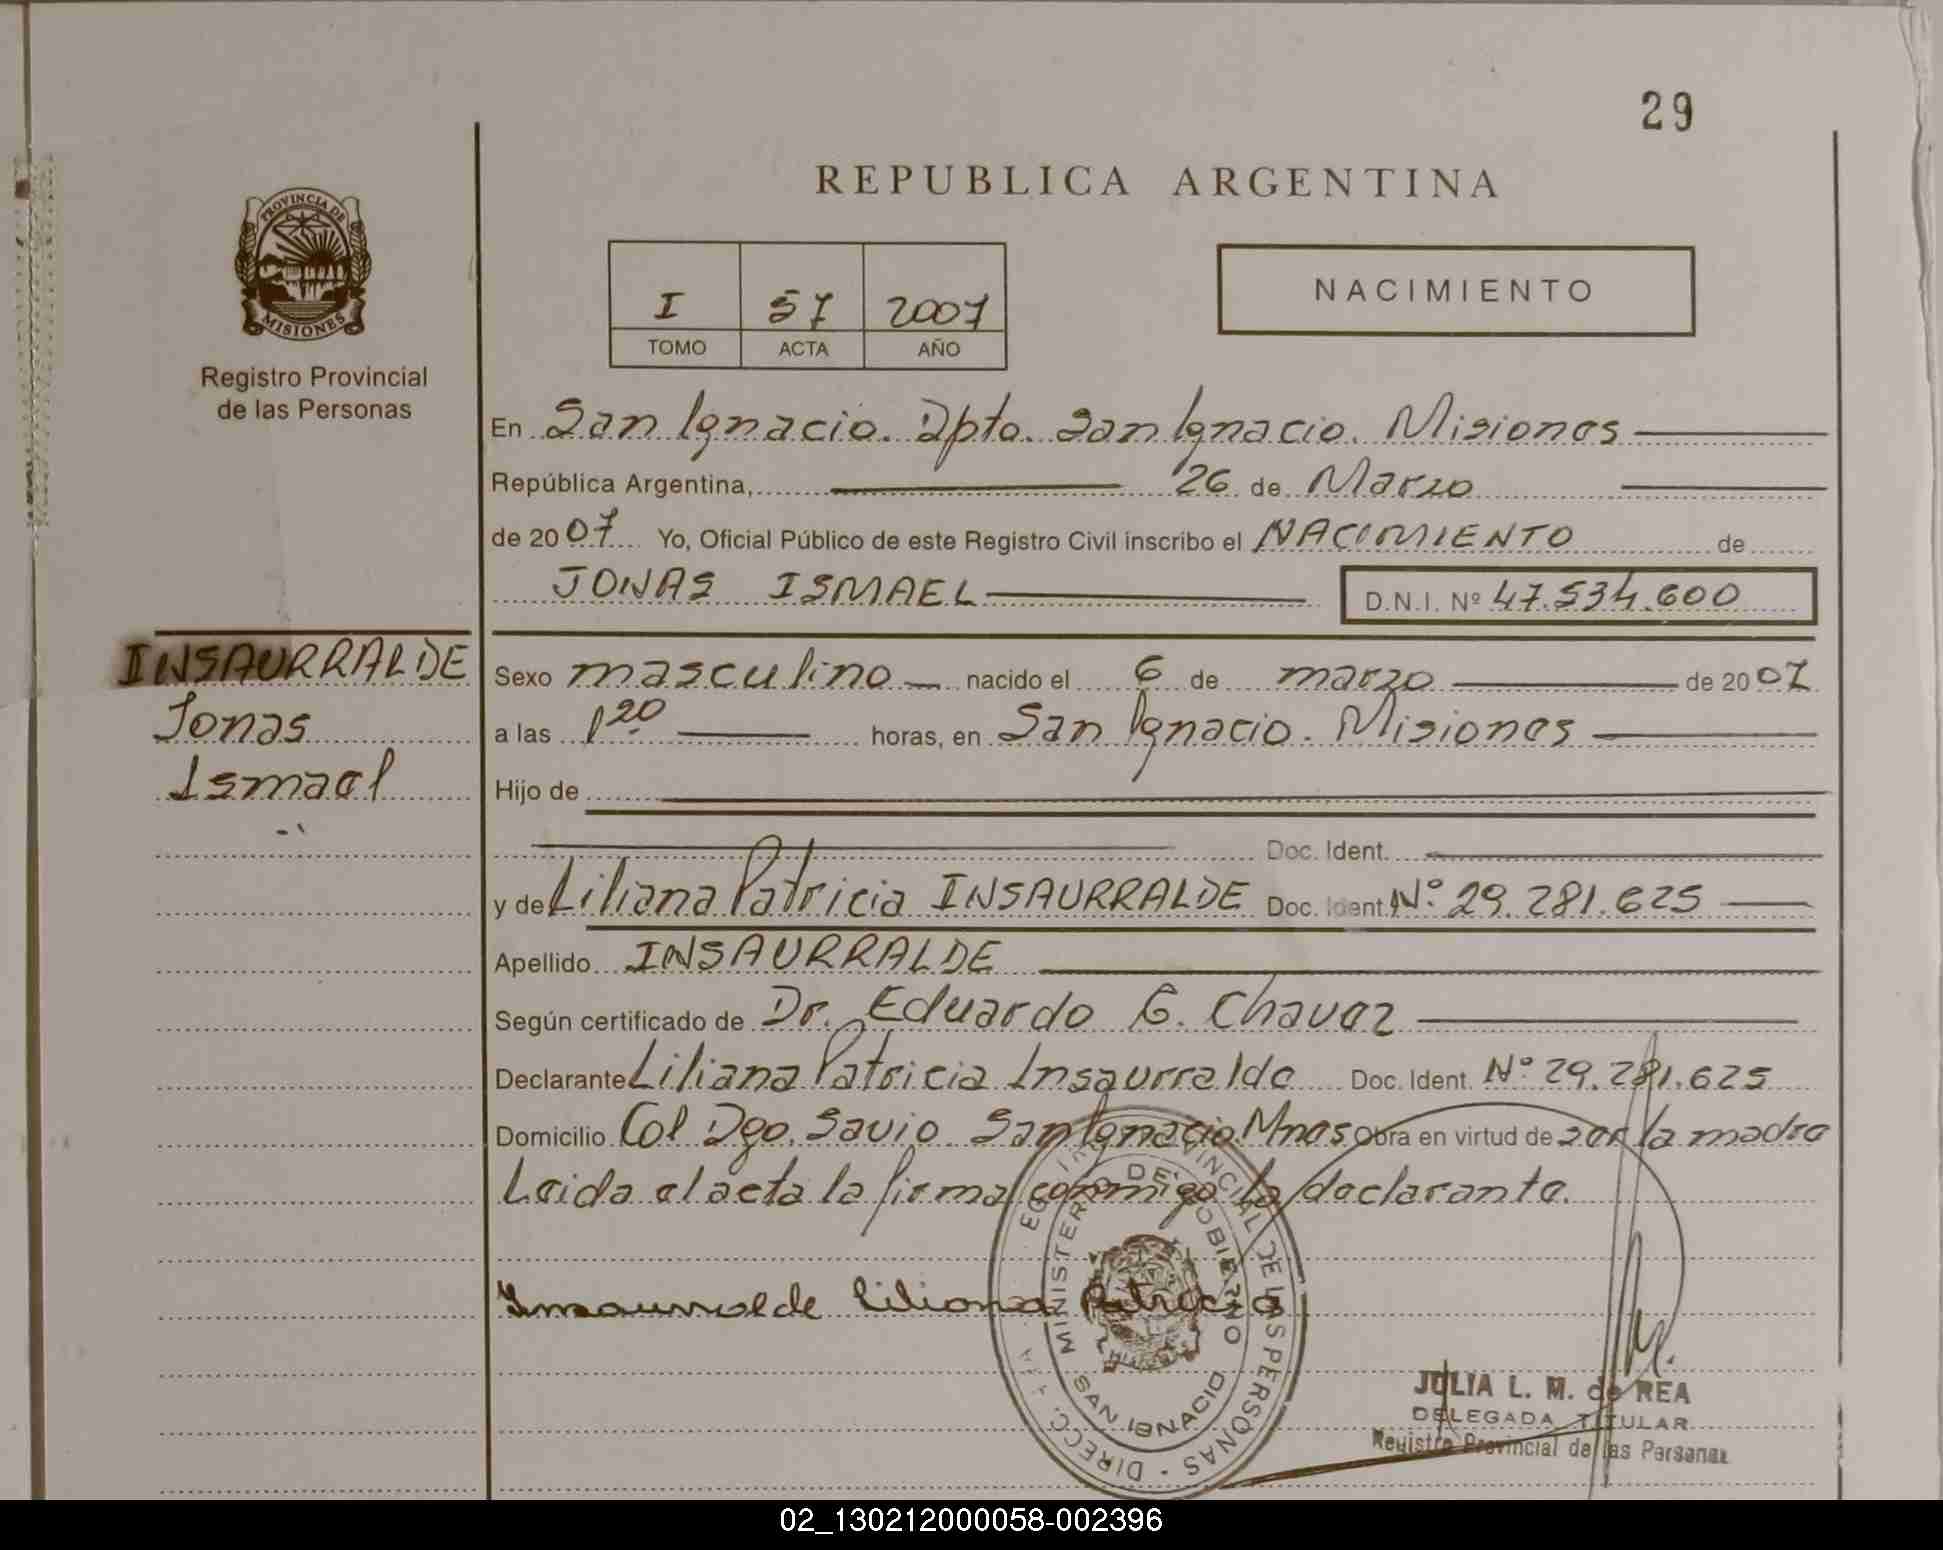 29
REPUBLICA ARGENTINA
PROVINCIA DE
MISIONES
Registro Provincial
de las Personas
I 57 2007
TOMO ACTA AÑO
NACIMIENTO
En San Ignacio. Dpto. San Ignacio. Misiones
República Argentina, 26 de Marzo
de 2007 Yo, Oficial Público de este Registro Civil inscribo el NACIMIENTO de
JONAS ISMAEL D.N.I. Nº 47.534.600
INSAURRALDE
Jonas
Ismael
Sexo masculino nacido el 6 de marzo de 2007
a las 1 20 horas, en San Ignacio. Misiones
Hijo de
Doc. Ident.
y de Liliana Patricia INSAURRALDE Doc. Ident. Nº 29.281.625
Apellido INSAURRALDE
Según certificado de Dr. Eduardo G. Chavez
Declarante Liliana Patricia Insaurralde Doc. Ident. Nº 29.281.625
Domicilio Col Dgo. Savio San Ignacio. Mnes Obra en virtud de ser la madre
Leida el acta la firma conmigo la declarante.
Insaurralde Liliana Patricia
MINISTERIO DE GOBIERNO
SAN IGNACIO
JULIA L. M. de REA
DELEGADA TITULAR
Registro Provincial de las Personas
02_130212000058-002396